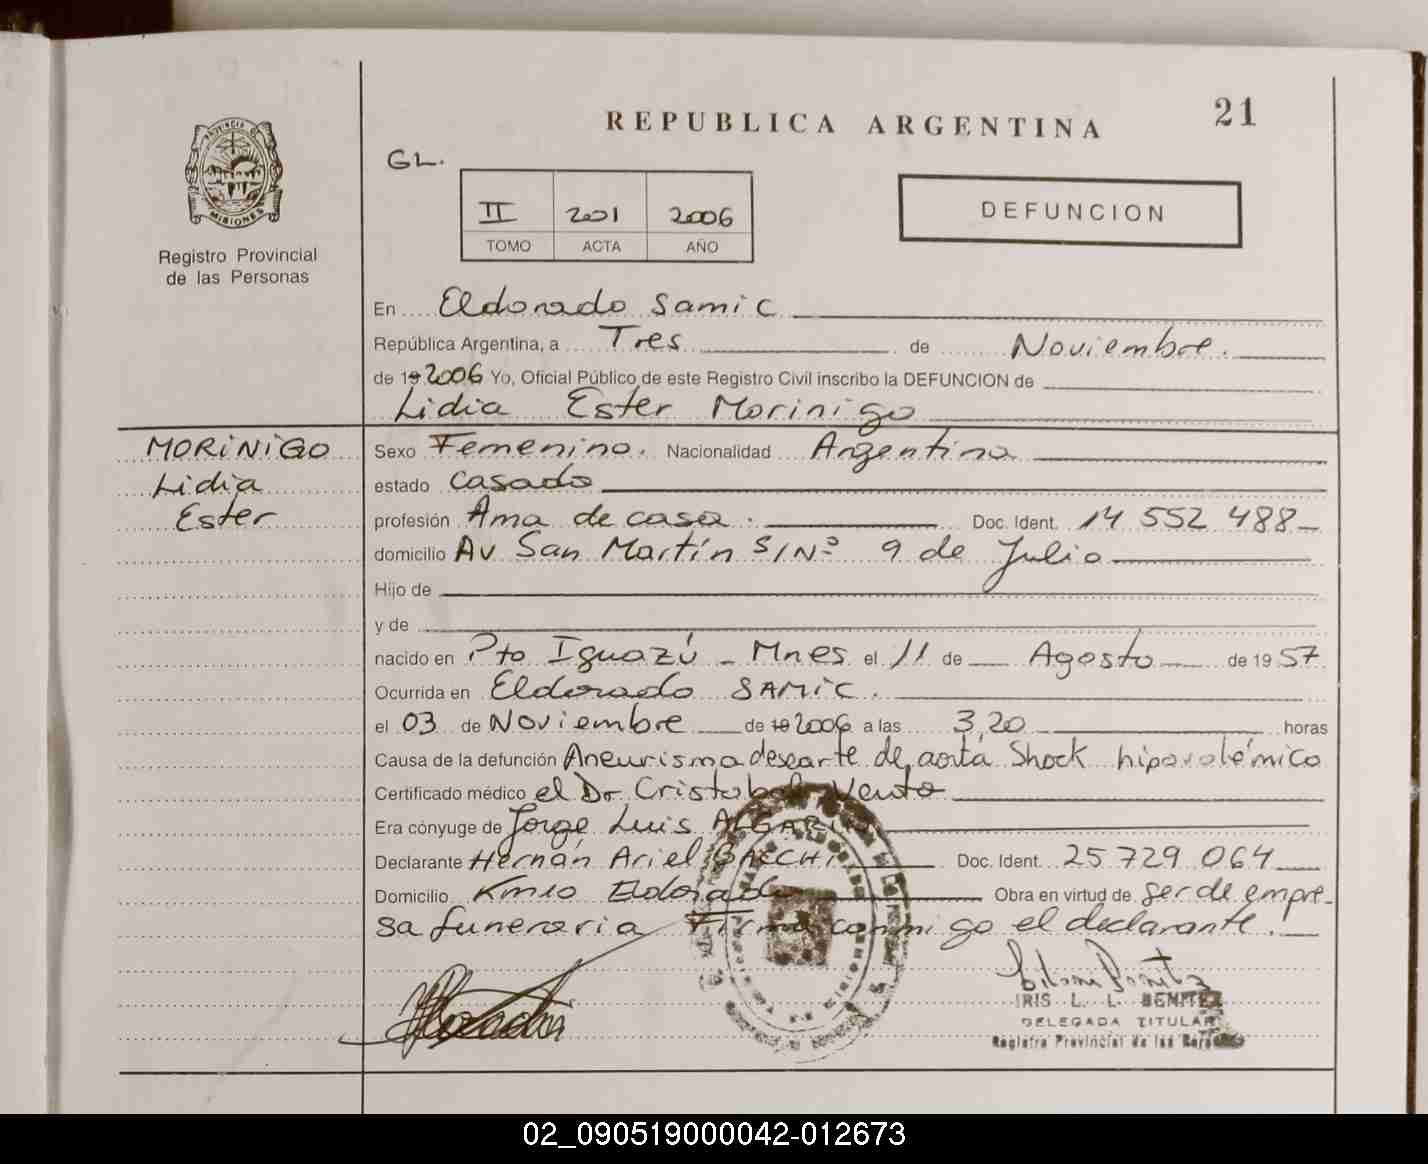 REPUBLICA ARGENTINA
21
PROVINCIA DE
MISIONES
Registro Provincial
de las Personas
GL.
II 201 2006
TOMO ACTA AÑO
DEFUNCION
En Eldorado Samic
República Argentina, a Tres de Noviembre.
de 19 2006 Yo, Oficial Público de este Registro Civil inscribo la DEFUNCION de
Lidia Ester Morinigo
MORINIGO
Lidia
Ester
Sexo Femenino. Nacionalidad Argentina
estado casado
profesión Ama de casa. Doc. Ident. 14 552 488
domicilio Av San Martín S/Nº 9 de Julio
Hijo de
y de
nacido en Pto Iguazú - Mnes el 11 de Agosto de 19 57
Ocurrida en Eldorado SAMIC.
el 03 de Noviembre de 19 2006 a las 3,20 horas
Causa de la defunción Aneurisma desearte de aorta Shock hipovolémico
Certificado médico el Dr. Cristobal Vento
Era cónyuge de Jorge Luis
Declarante Hernán Ariel Doc. Ident. 25 729 064
Domicilio Km10 Eldorado Obra en virtud de ser de empre-
sa funeraria Firma conmigo el declarante.
IRIS L. L. BENITEZ
DELEGADA TITULAR
Registro Provincial de las Personas
02_090519000042-012673